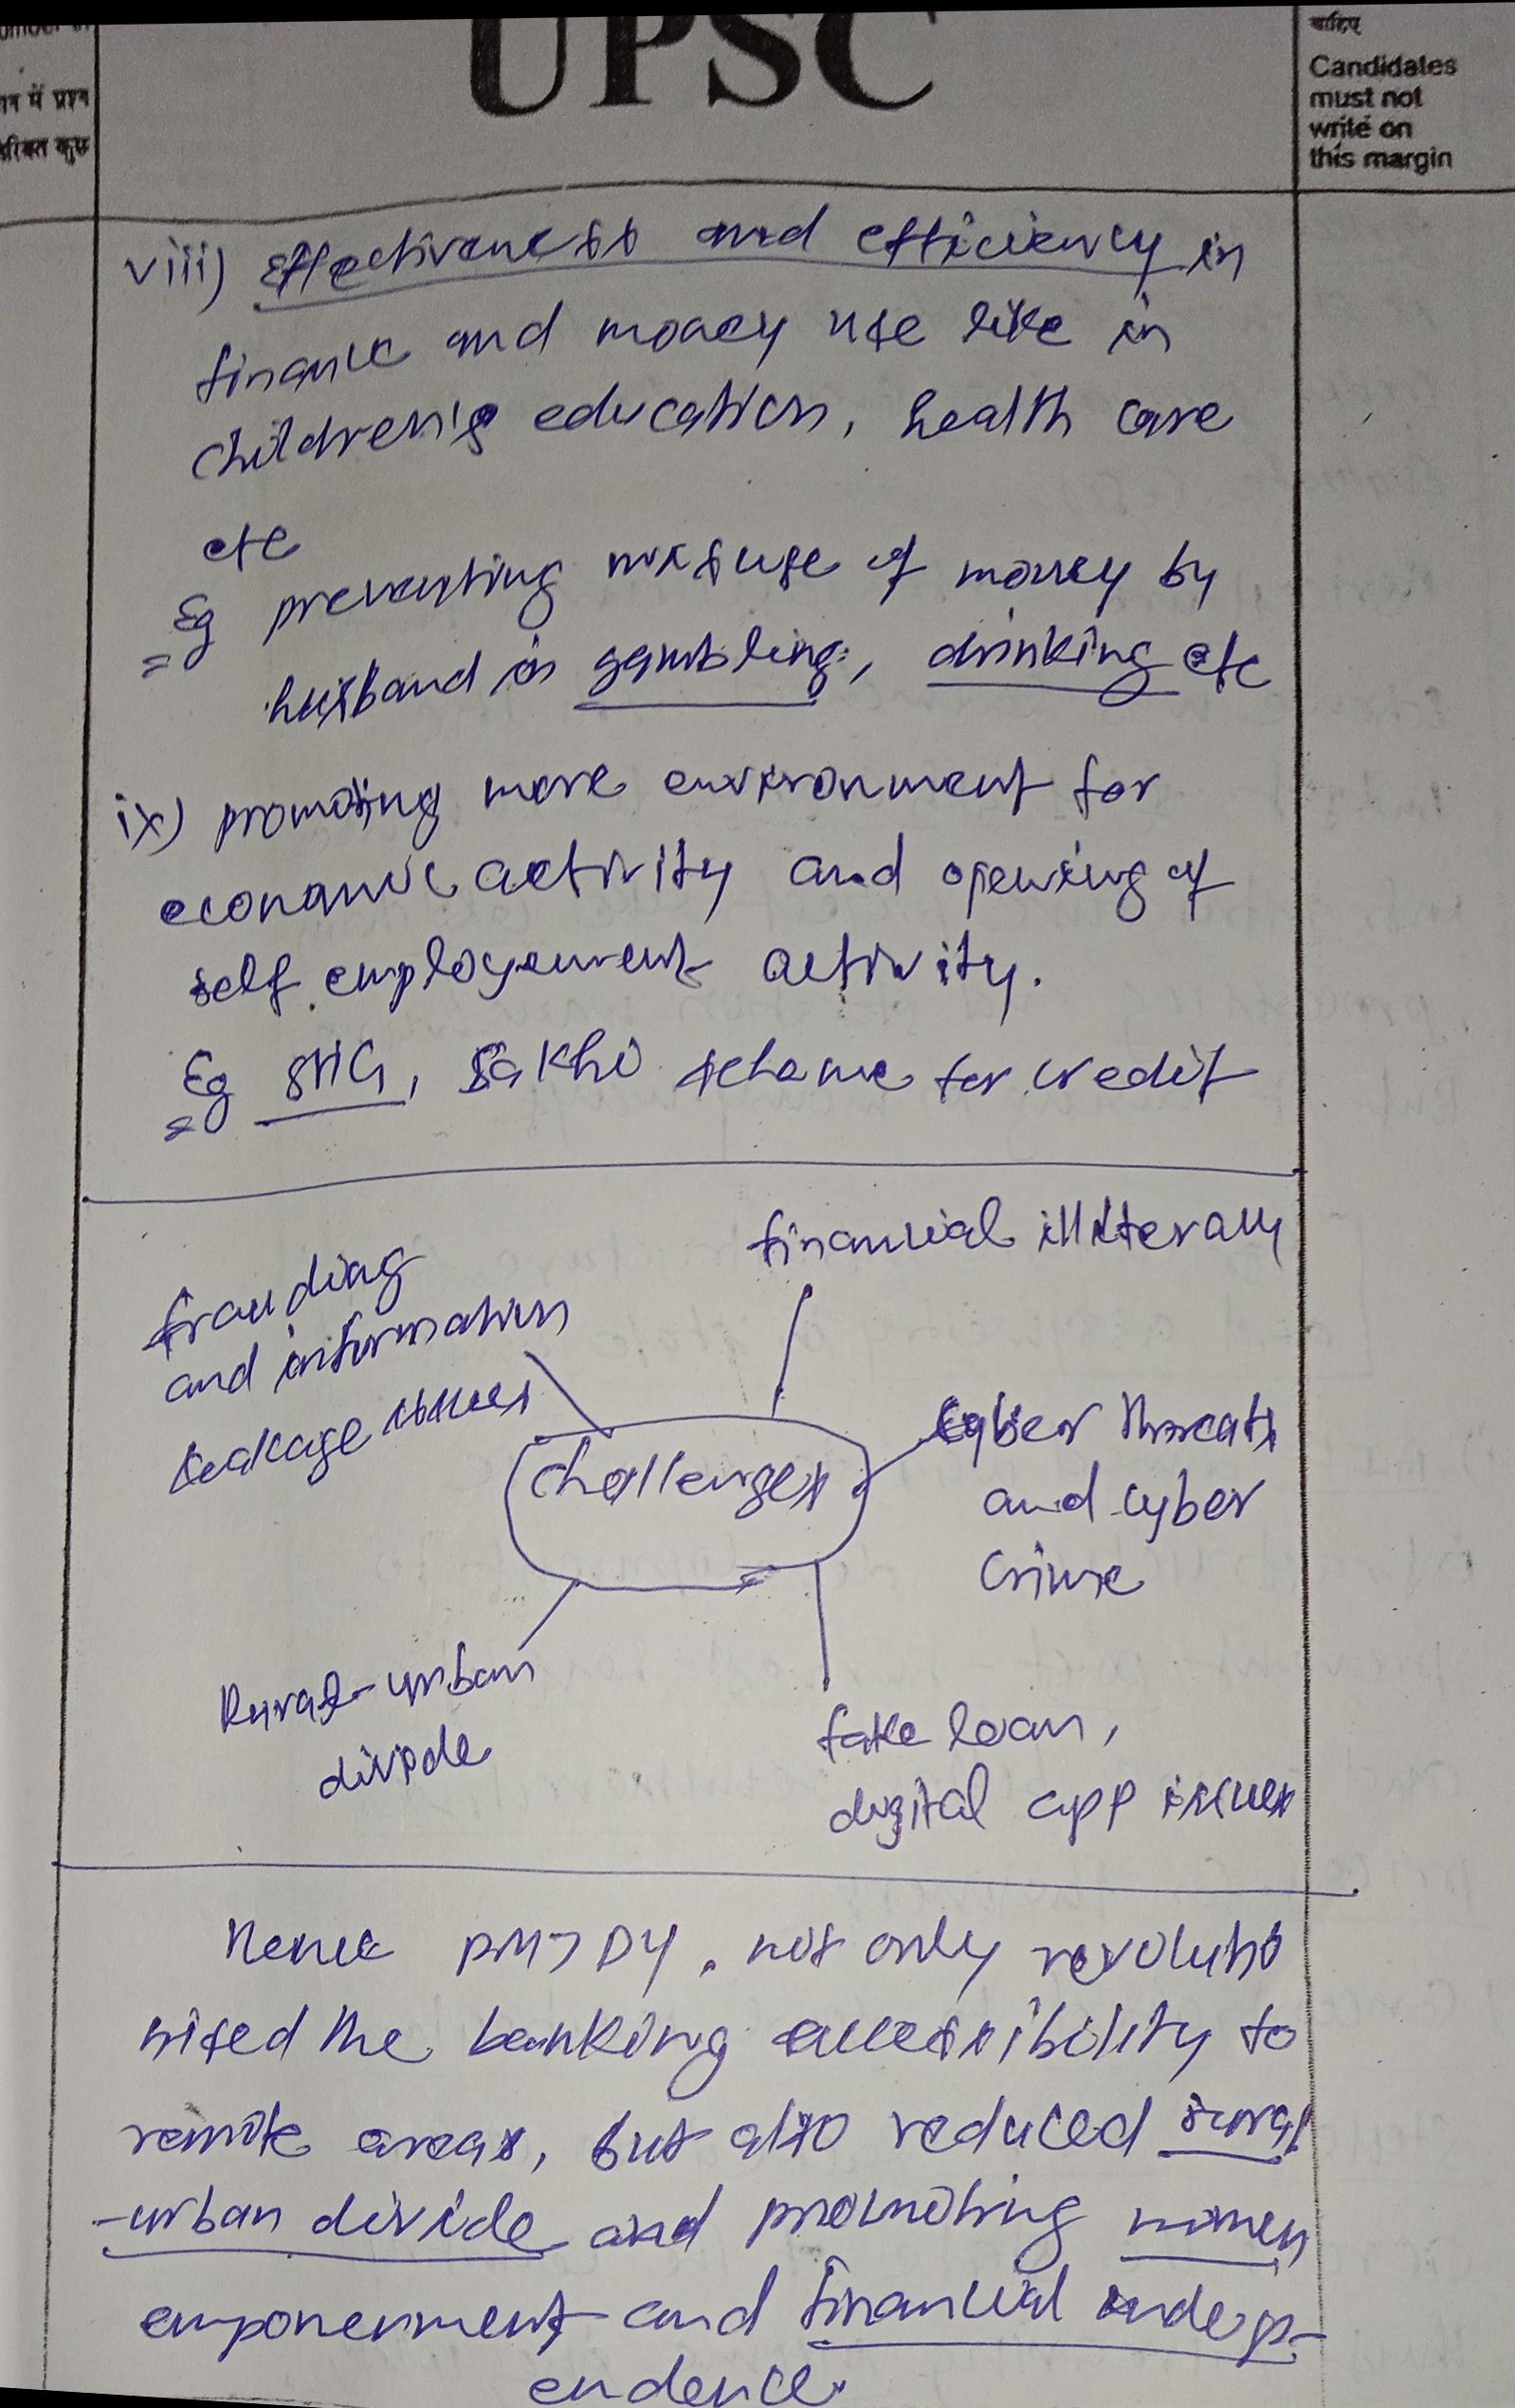 UPSC
में प्रश्न
कुछ
चाहिए
Candidates
must not
write on
this margin
viii) Effectiveness and efficiency in
finance and money use like in
children's education, health care
etc
Eg preventing misuse of money by
husband in gambling, drinking etc
ix) promoting more environment for
economic activity and opening of
self employement activity.
Eg SHG, Sakhi scheme for credit
financial illiteracy
frauding
and information
leakage issues
challenges
cyber threats
and cyber
crime
Rural-urban
divide
fake loan,
digital app issues
Hence PMJDY, not only revolutio
nised the banking accessibility to
remote areas, but also reduced rural
-urban divide and promoting women
empowerment and financial indep-
endence.